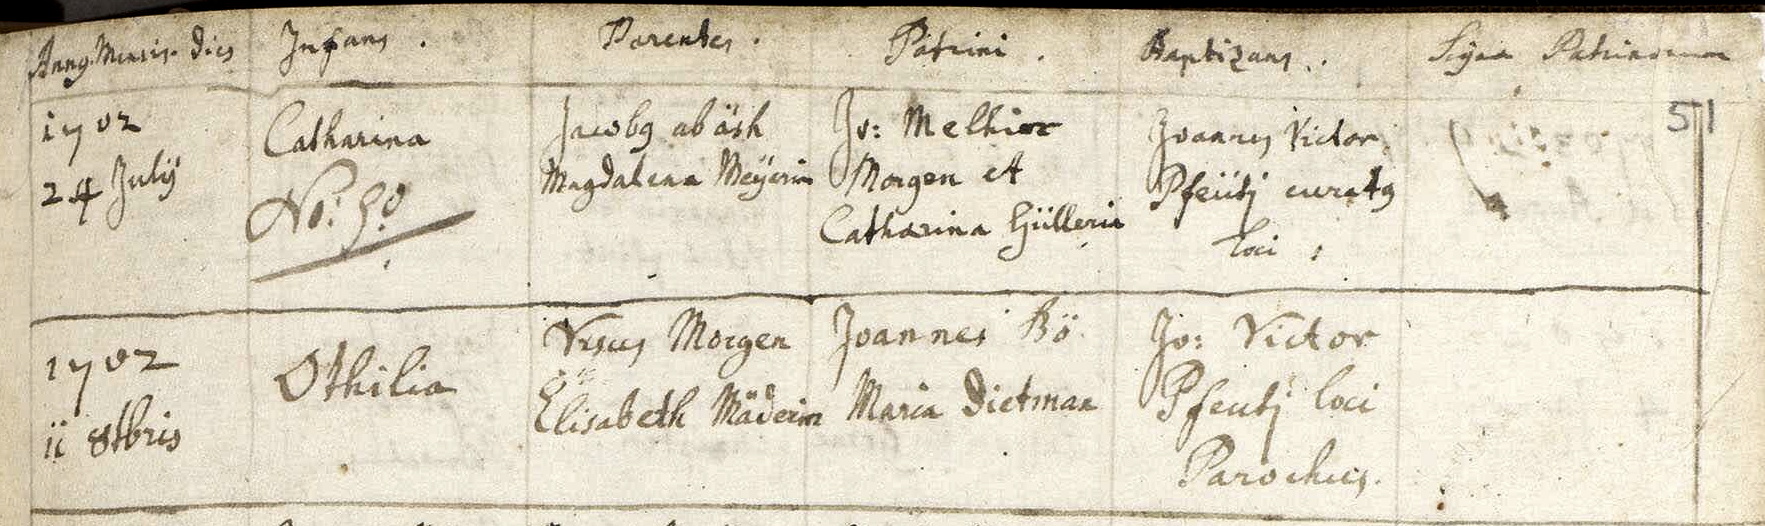 Annq. Mensis. Dies Infans. Parentes. Patrini. Baptizans. Signa Patrinorum
51
1702
24 July
Catharina
No: 50
Jacobq abäsh
Magdalena Meÿerin
Jo: Melhior
Morgen et
Catharina
Joannes Victor
Pfeütj curatq
loci
1702
ii 8tbris
Othilia
Vrsus Morgen
Elisabeth Mäderin
Joannes Bö
Maria Dietman
Jo: Victor
Pfeutj loci
Parochus.